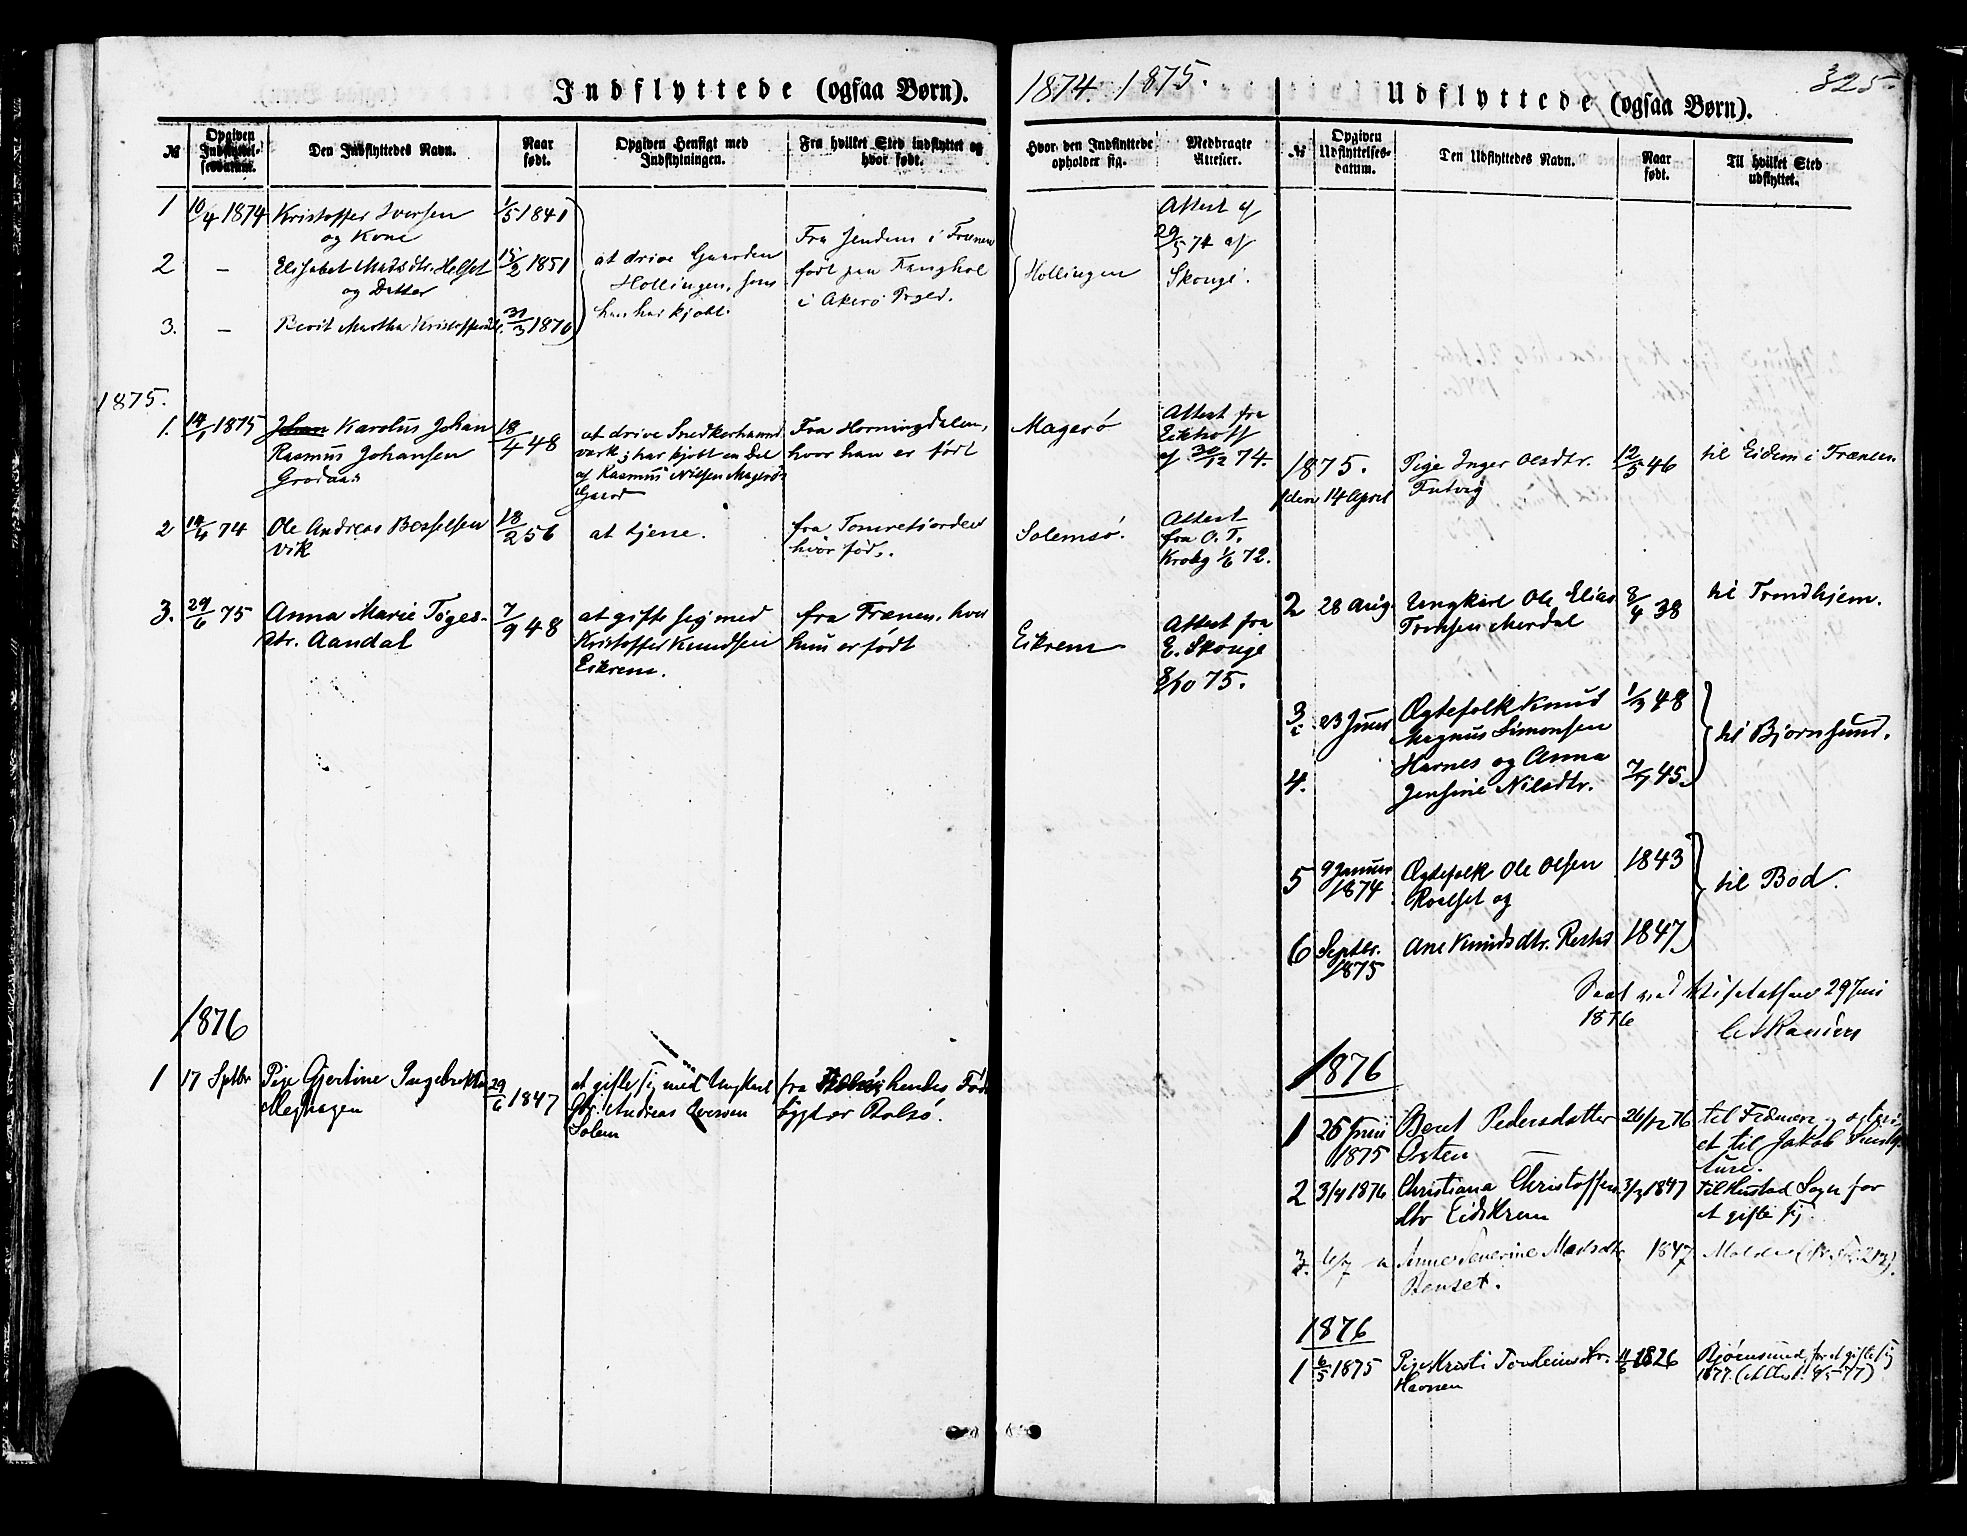 Indflyttede (ogsaa Børn).
1874. 1875.
№
Opgiven Indflyttelsesdatum.
Den Indflyttedes Navn.
Naar født.
Opgiven Hensigt med Indflytningen.
Fra hvilket Sted indflyttet og hvor født.
Hvor den Indflyttede opholder sig.
Medbragte Attester.
1 10/4 1874 Kristoffer Iversen 1/5 1841
og Kone
2 – Elisabet Madsdtr. Helset 15/2 1851
og Datter
3. – Berit Martha Kristoffersdtr. 31/3 1870
at drive Gaarden
Hollingen, som
han har kjøbt.
Fra Jendem i Frænen
født paa Tanghol
i Akerø Prgld.
Hollingen
Attest af
29/5 74 af
Skouge.
1875.
1. 14/1 1875 Johan Karolus Johan 18/4 48
Rasmus Johansen
Grodaas
at drive Snedkerhaand
værk; har kjøbt en Del
af Rasmus Nilsen Magerøs
Gaard
Fra Horningdalen,
hvor han er født
Magerø
Attest fra
Eikhoff
af 30/12 74.
2 14/4 74 Ole Andreas Besselsen 18/2 56
Vik
at tjene.
fra Tomrefjorden
hvor fød.
Solemsø.
Attest
fra O. T.
Krohg 1/6 72.
3. 29/6 75 Anna Marie Tøges- 7/9 48
dtr. Aandal
at gifte sig med
Kristoffer Knudsen
Eikrem.
fra Frænen, hvor
hun er født
Eikrem
Attest fra
E. Skouge
8/10 75.
1876
1 17 Sptbr Pige Gjertine Ingebrektsd 29/6 1847
Meghagen
at gifte sig med Ungkarl
Andreas Iversen
Solem
fra hendes Føde
bygd er Bolsø.
325.
Udflyttede (ogsaa Børn).
№
Opgiven Udflyttelsesdatum.
Den Udflyttedes Navn.
Naar født.
Til hvilket Sted udflyttet.
1875. Pige Inger Olsdtr. 12/5 46 til Eidem i Frænen
1 den 14 April Tutvig
2 28 Aug. Ungkarl Ole Elias 8/4 38 til Trondhjem.
Tronsen Merdal
3 23 Juni Ægtefolk Knud 1/3 48
Magnus Simonsen
4. Harnes og Anna 7/7 45.
Jensine Nilsdtr.
til Bjørnsund.
5 9 Januar Ægtefolk Ole Olsen 1843
1874 Roalset og
til Bod.
6 Septbr. Ane Knudsdtr. Restes 1847
1875
Seet ved Visitatsen 29 Juni
1876
1876
1 25 Juni Beret Pedersdatter 26/12 76 til Frænen
1875 Orten et til Jakob
2 3/4 1876 Christiana Christoffers 3/3 1847 til Hustad Sogn for
dtr Eidskrem at gifte sig
3. 6/7 Anne Severine Madsdtr 1847 Molde
Henset.
1876
1 6/5 1875 Pige Kristi Torsteinsdtr. 11/6 1826 Bjørnsund, for at gifte sig
Havnen 1877. (Attest. 9/5 77)